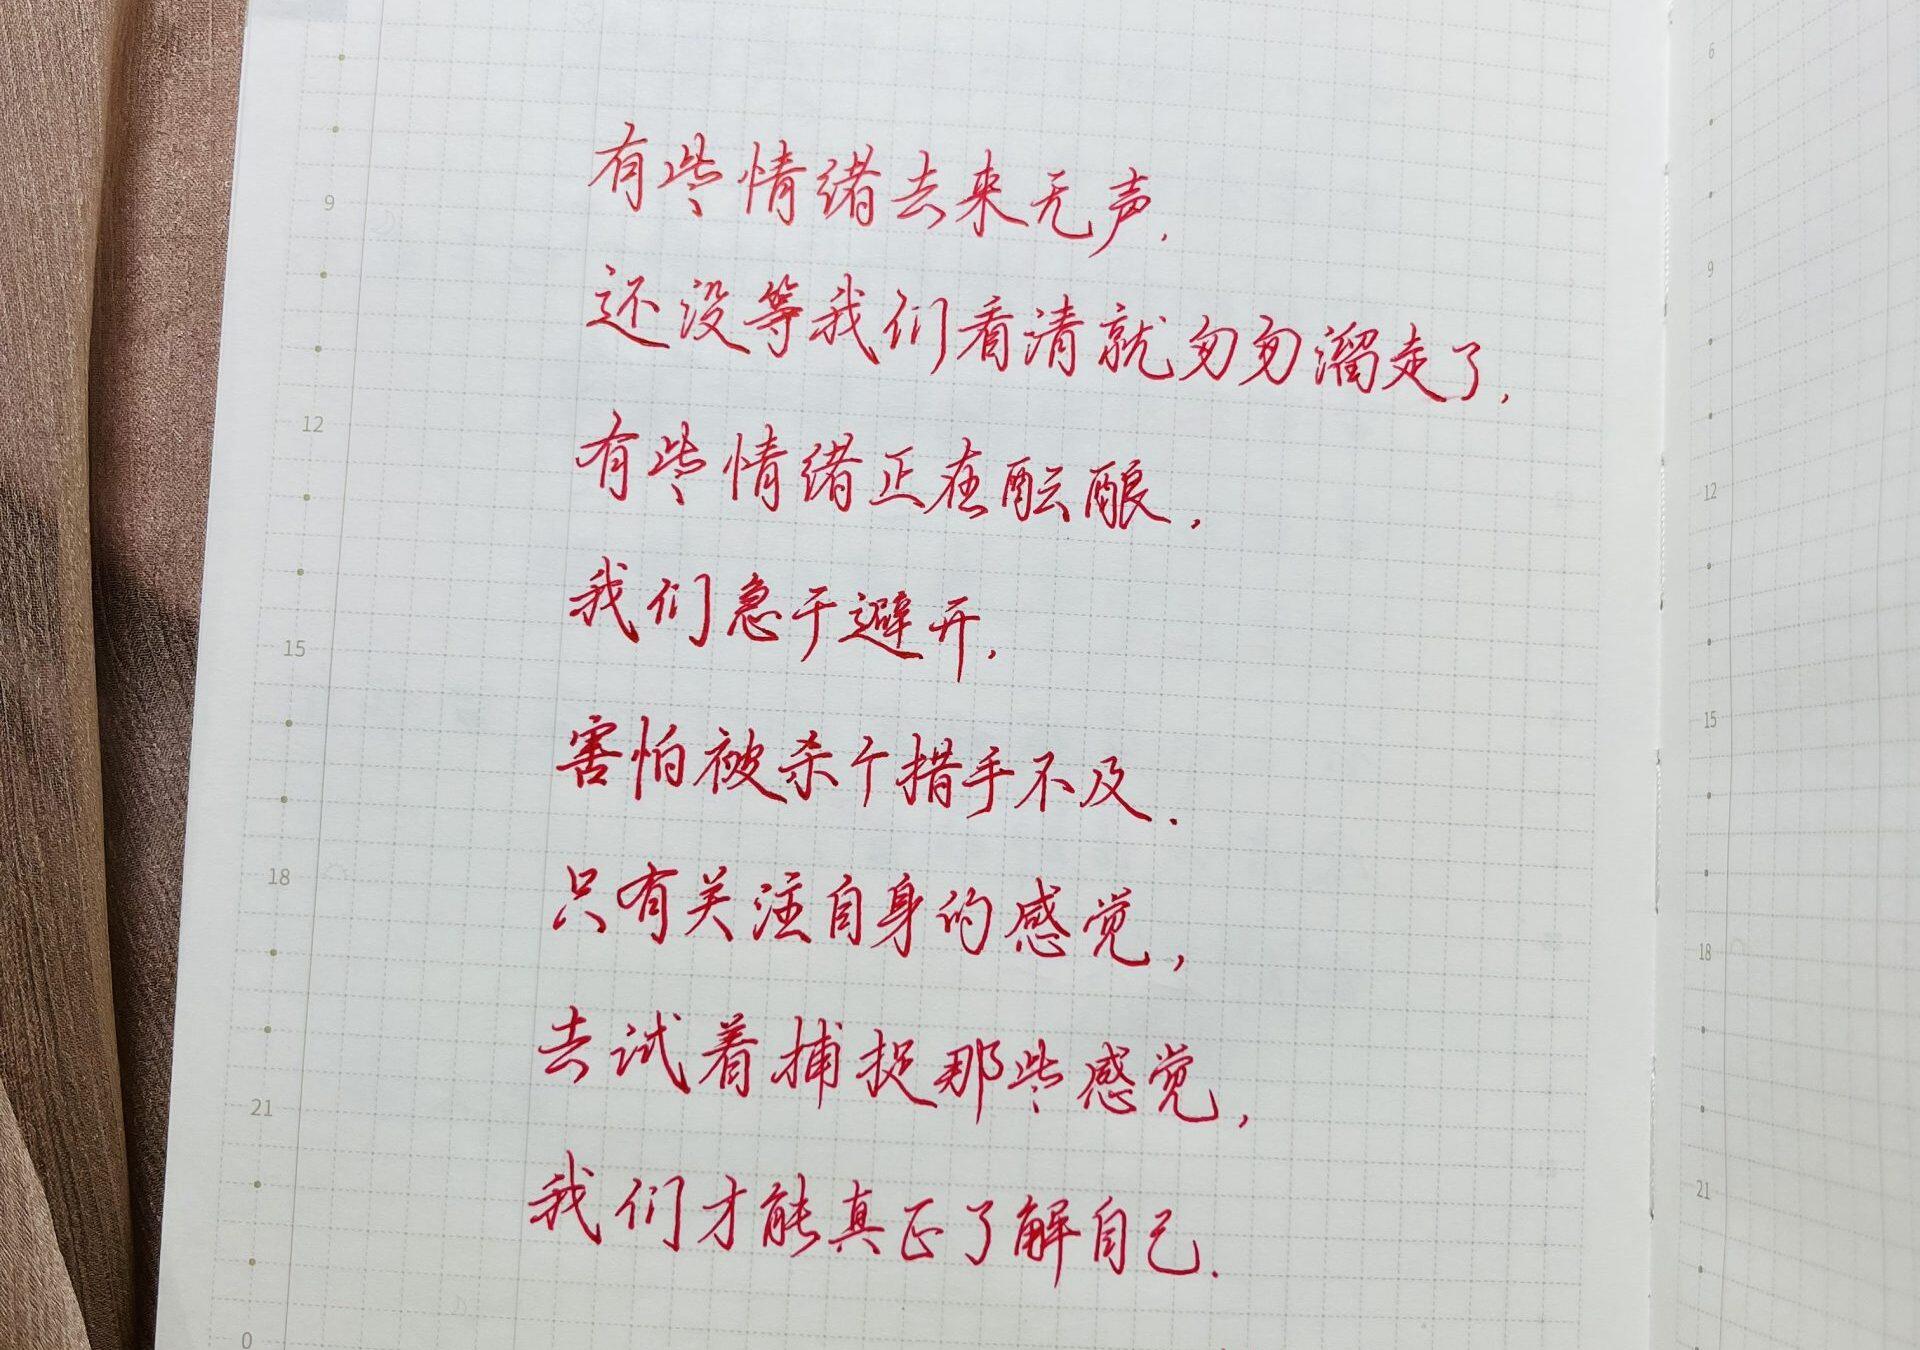 有些情绪去来无声.
还没等我们看清就匆匆溜走了,
有些情绪正在酝酿,
我们急于避开.
害怕被杀个措手不及.
只有关注自身的感觉,
去试着捕捉那些感觉,
我们才能真正了解自己.
9
12
15
18
21
0
6
9
12
15
18
21